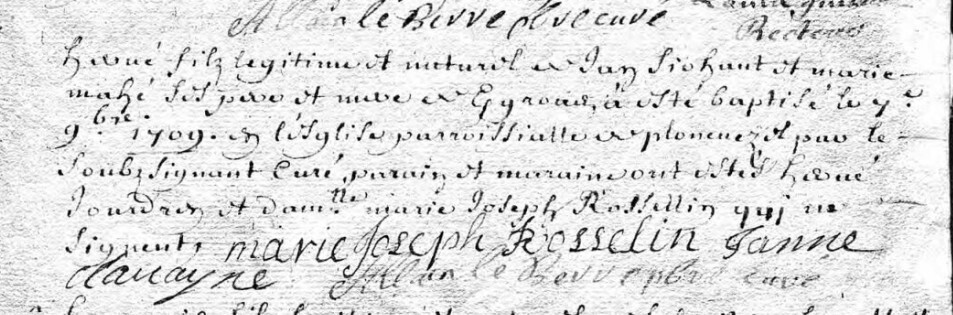 Allain le Berre ptre curé
Recteur
hervé filz legitime et naturel de Jan Siohant et marie
mahé ses pere et mere de a esté baptisé le 7.e
9.bre 1709. en l'esglise parroissialle de plonevez par le
soubzsignant Curé, parain et maraine ont estés hervé
Jourdren et dam.lle marie Joseph Rossellin qui
signent, marie Joseph Rosselin Janne
Allain le Berre ptre curé